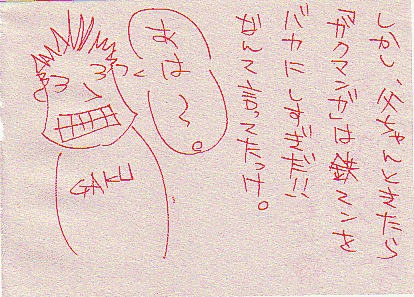 しかし、父ちゃんときたら
「ガクマンガ」は鉄マンを
バカにしすぎだ!!
なんて言ってたっけ。
あは〜。
GAKU